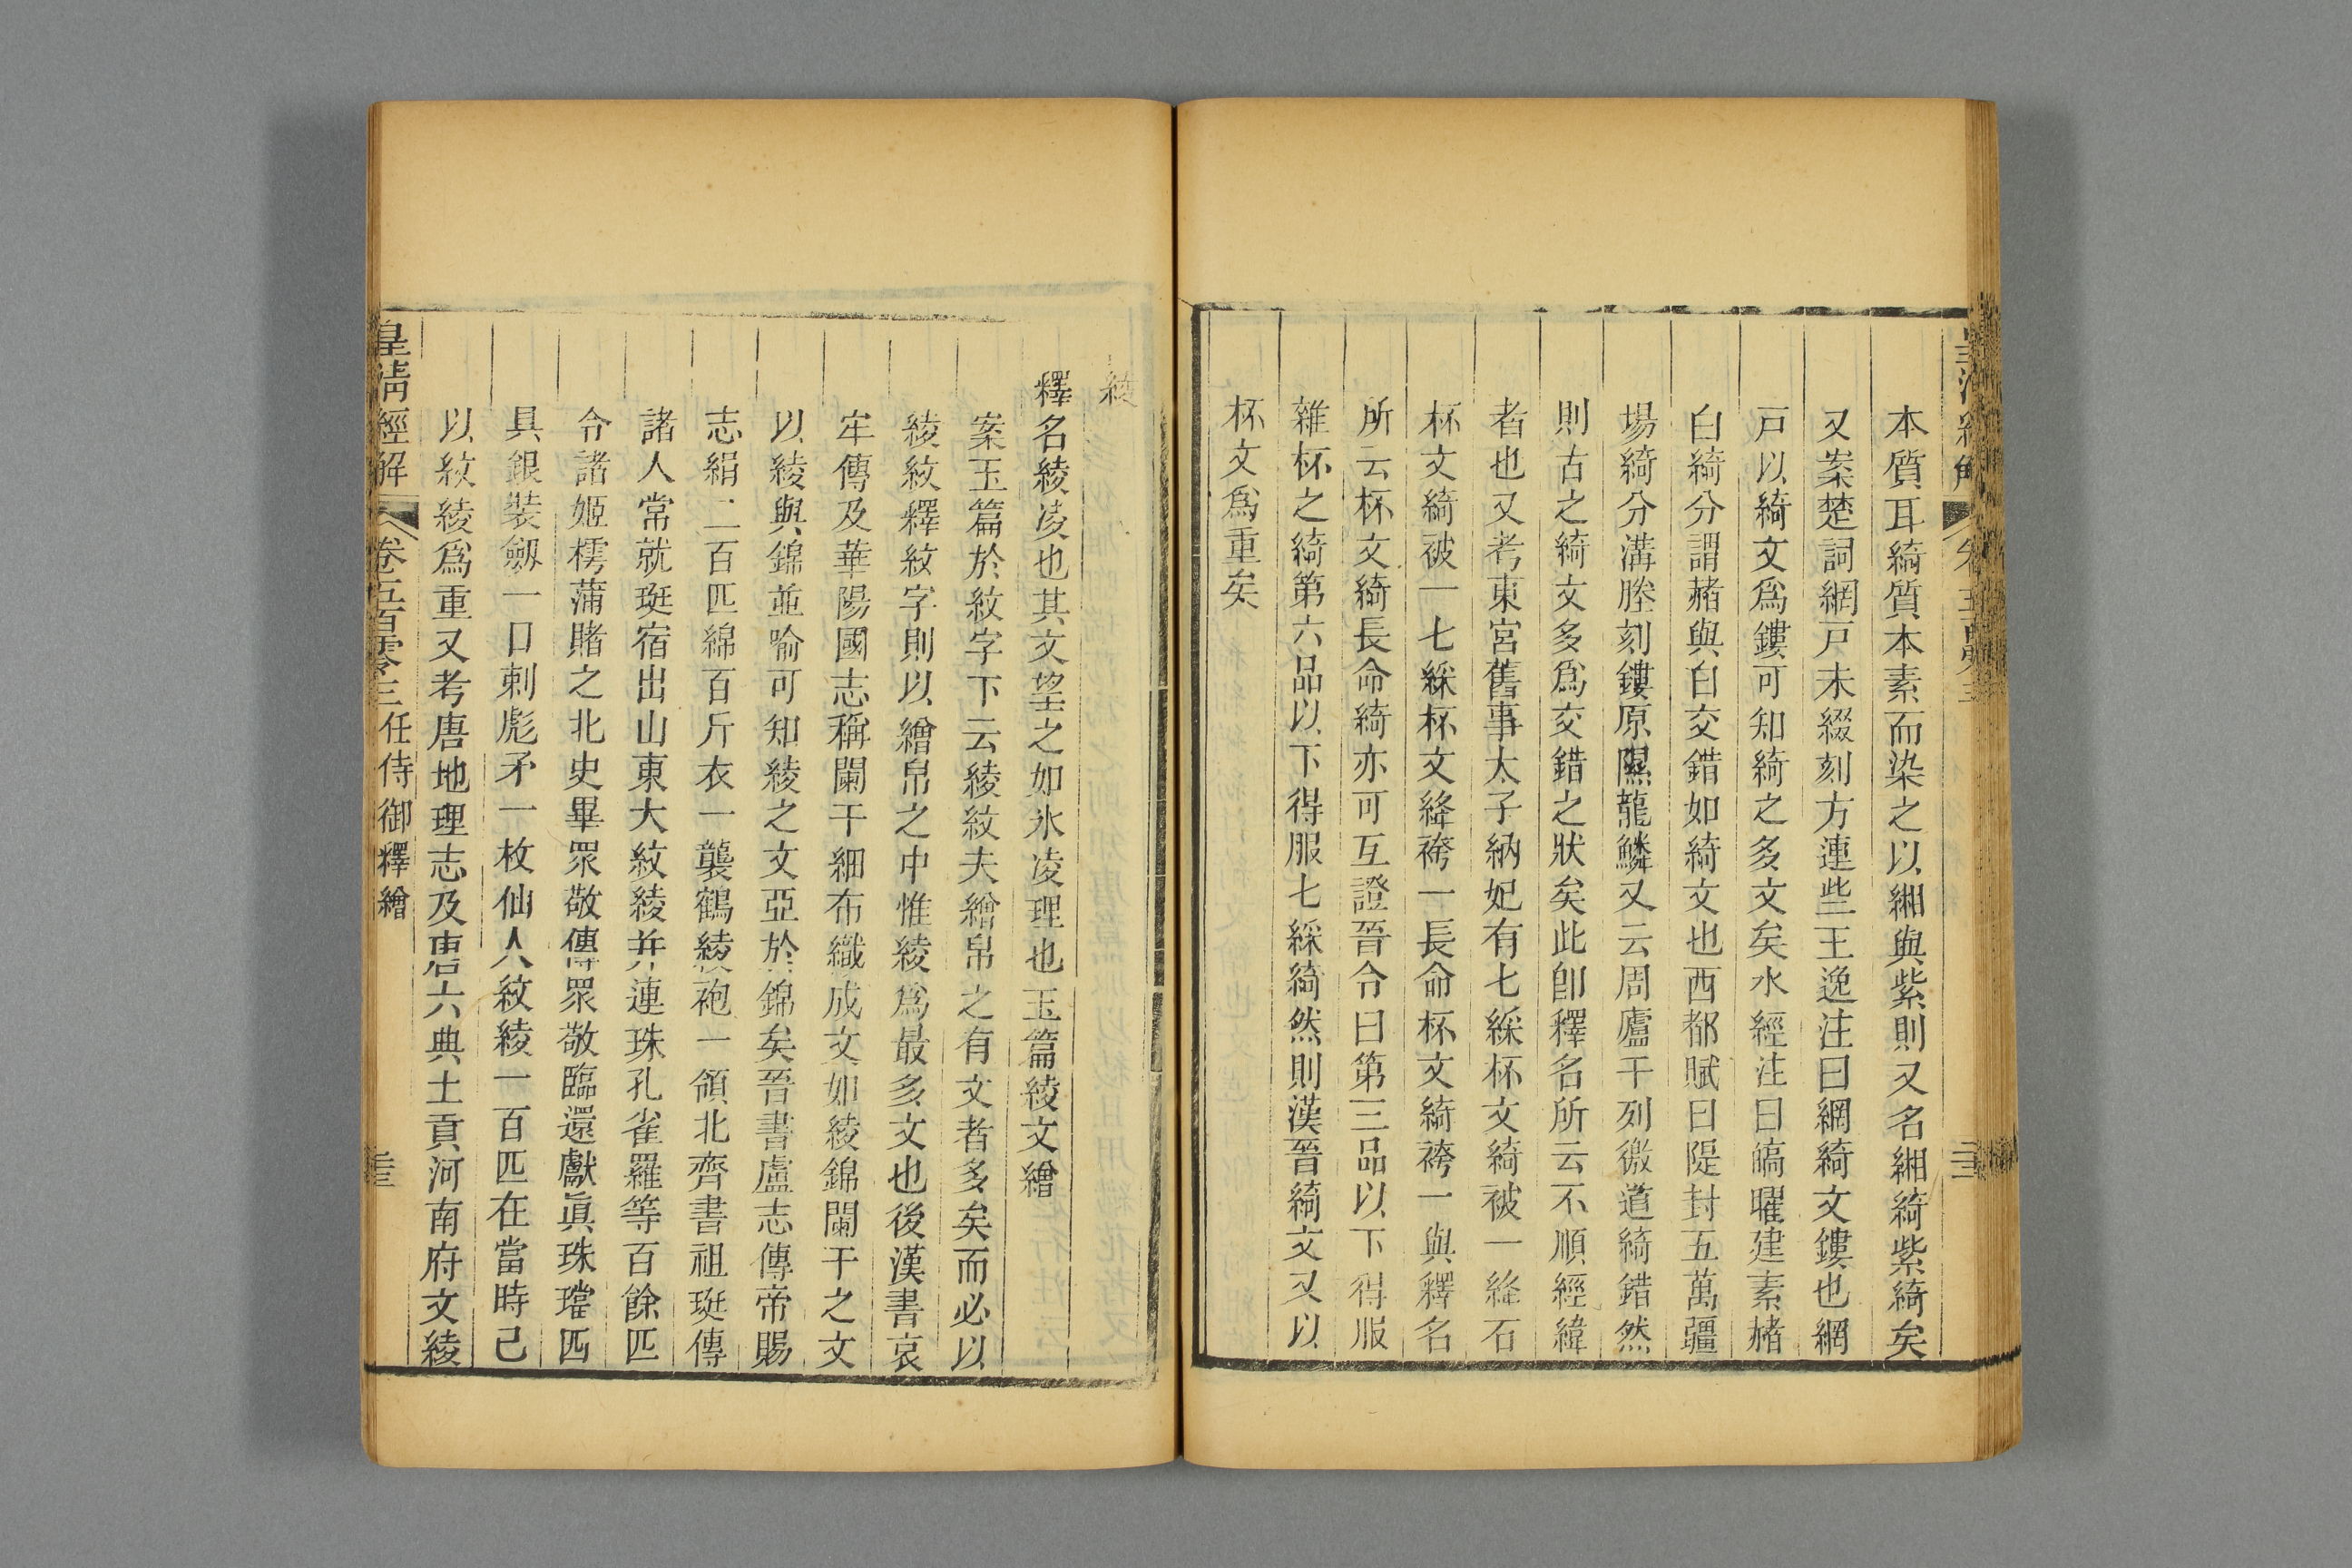 本質耳綺質本素而染之以緗與紫則又名緗綺紫綺矣
又案楚詞網戸朱綴刻方連些王逸注曰網綺文鏤也網
戸以綺文為鏤可知綺之多文矣水經注曰皜曜建素赭
白綺分謂赭與白交錯如綺文也西都賦曰隄封五萬疆
場綺分溝塍刻鏤原隰龍鱗又云周廬干列徼道綺錯然
則古之綺文多爲交錯之狀矣此卽釋名所云不順經緯
者也又考東宮舊事太子納妃有七綵杯文綺被一絳石
杯文綺被一七綵杯文絳袴一長命杯文綺袴一與釋名
所云杯文綺長命綺亦可互證晉令曰第三品以下得服
雜杯之綺第六品以下得服七綵綺然則漢晉綺文又以
杯文爲重矣
綾
釋名綾凌也其文望之如氷凌理也玉篇綾文繒
案玉篇於紋字下云綾紋夫繒帛之有文者多矣而必以
綾紋釋紋字則以繒帛之中惟綾爲最多文也後漢書哀
牢傳及華陽國志稱闌干細布織成文如綾錦闌干之文
以綾與錦並喻可知綾之文亞於錦矣晉書盧志傳帝賜
志絹二百匹綿百斤衣一襲鶴綾袍一領北齊書祖珽傳
諸人常就珽宿出山東大紋綾并連珠孔雀羅等百餘匹
令諸姬樗蒲賭之北史畢眾敬傳眾敬臨還獻眞珠璫匹
具銀裝劔一口刺彪矛一枚仙人紋綾一百匹在當時已
以紋綾爲重又考唐地理志及唐六典土貢河南府文綾
皇淸經解 卷五百零三 任侍御釋繒